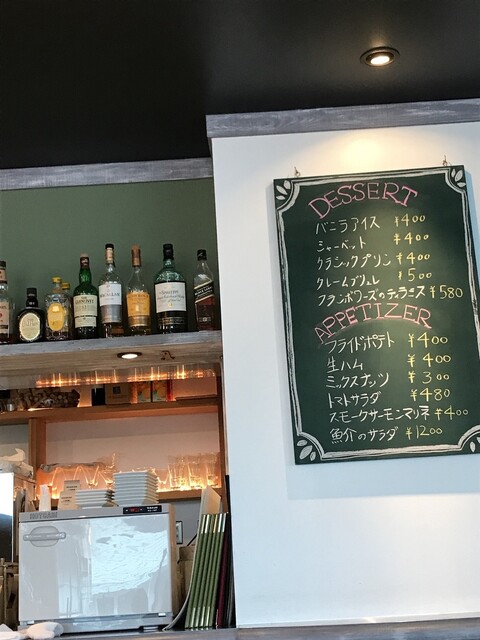 DESSERT
バニラアイス ¥400
シャーベット ¥400
クラシックプリン ¥400
クレームブリュレ ¥500
フランボワーズのティラミス ¥580
APPETIZER
フライドポテト ¥400
生ハム ¥400
ミックスナッツ ¥300
トマトサラダ ¥480
スモークサーモンマリネ ¥400
魚介のサラダ ¥1200